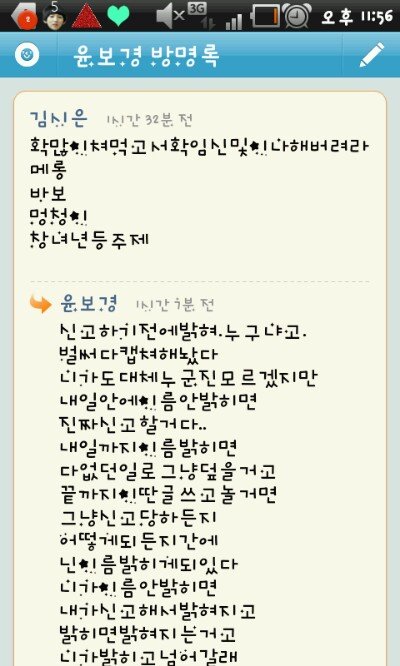 2
5
3G
오후 11:56
윤보경 방명록
김시은 1시간 32분 전
확많이쳐먹고서확임신및이나해버려라
메롱
바보
멍청이
창녀년등주제
윤보경 1시간 9분 전
신고하기전에밝혀.누구냐고.
벌써다캡쳐해놨다
니가도대체누군진모르겠지만
내일안에이름안밝히면
진짜신고할거다..
내일까지이름밝히면
다없던일로그냥덮을거고
끝까지이딴글쓰고놀거면
그냥신고당하든지
어떻게되든지간에
닌이름밝히게되있다
니가이름안밝히면
내가신고해서밝혀지고
밝히면밝혀지는거고
니가밝히고넘어갈래